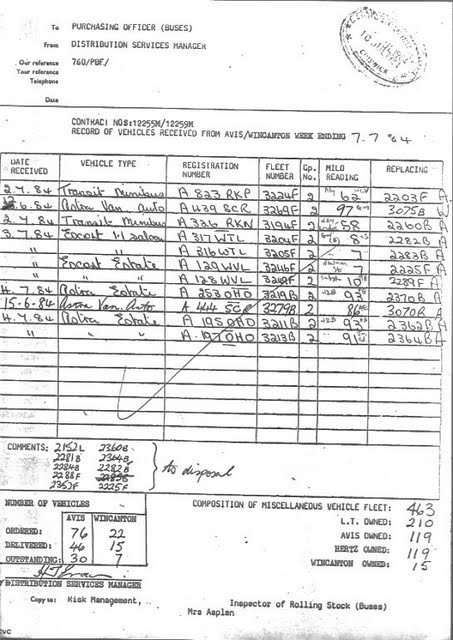 To PURCHASING OFFICER (BUSES)
From DISTRIBUTION SERVICES MANAGER
Our reference 760/PBF/
Your reference
Telephone
Date
CHISWICK
CONTRACT NOS:12255M/12259M
RECORD OF VEHICLES RECEIVED FROM AVIS/WINCANTON WEEK ENDING 7.7.84
DATE RECEIVED VEHICLE TYPE REGISTRATION NUMBER FLEET NUMBER Gp. No. MILO READING REPLACING
2.7.84 Transit Minibus A 823 RKP 3224F 2 62 2203F A
.6.84 Astra Van Auto A 439 SCR 3269F 2 97 3075B W
2.7.84 Transit Minibus A 326 RKN 3194F 2 58 2260B A
3.7.84 Escort 1.1 saloon A 317 WTL 3204F 2 8 2282B A
" " A 316 WTL 3205F 2 7 2283B A
" Escort Estate A 129 WVL 3246F 2 7 2225F A
" " A 128 WVL 2 10 2289F A
4.7.84 Astra Estate A 253 OHO 3219B 2 93 2370B A
15.6.84 Astra Van Auto A 444 SCR 3279B 2 86 3070B A
4.7.84 Astra Estate A 195 OHO 3211B 2 93 2362B A
" " A 197 OHO 3213B 2 91 2364B A
COMMENTS: 2152L 2360B
2281B 2364B
2284B 2282B
2288F
2352F 2225F
to disposal
NUMBER OF VEHICLES
AVIS WINCANTON
ORDERED: 76 22
DELIVERED: 46 15
OUTSTANDING: 30 7
COMPOSITION OF MISCELLANEOUS VEHICLE FLEET: 463
L.T. OWNED: 210
AVIS OWNED: 119
HERTZ OWNED: 119
WINCANTON OWNED: 15
DISTRIBUTION SERVICES MANAGER
Copy to: Risk Management, Inspector of Rolling Stock (Buses)
Mrs Asplen
CWC